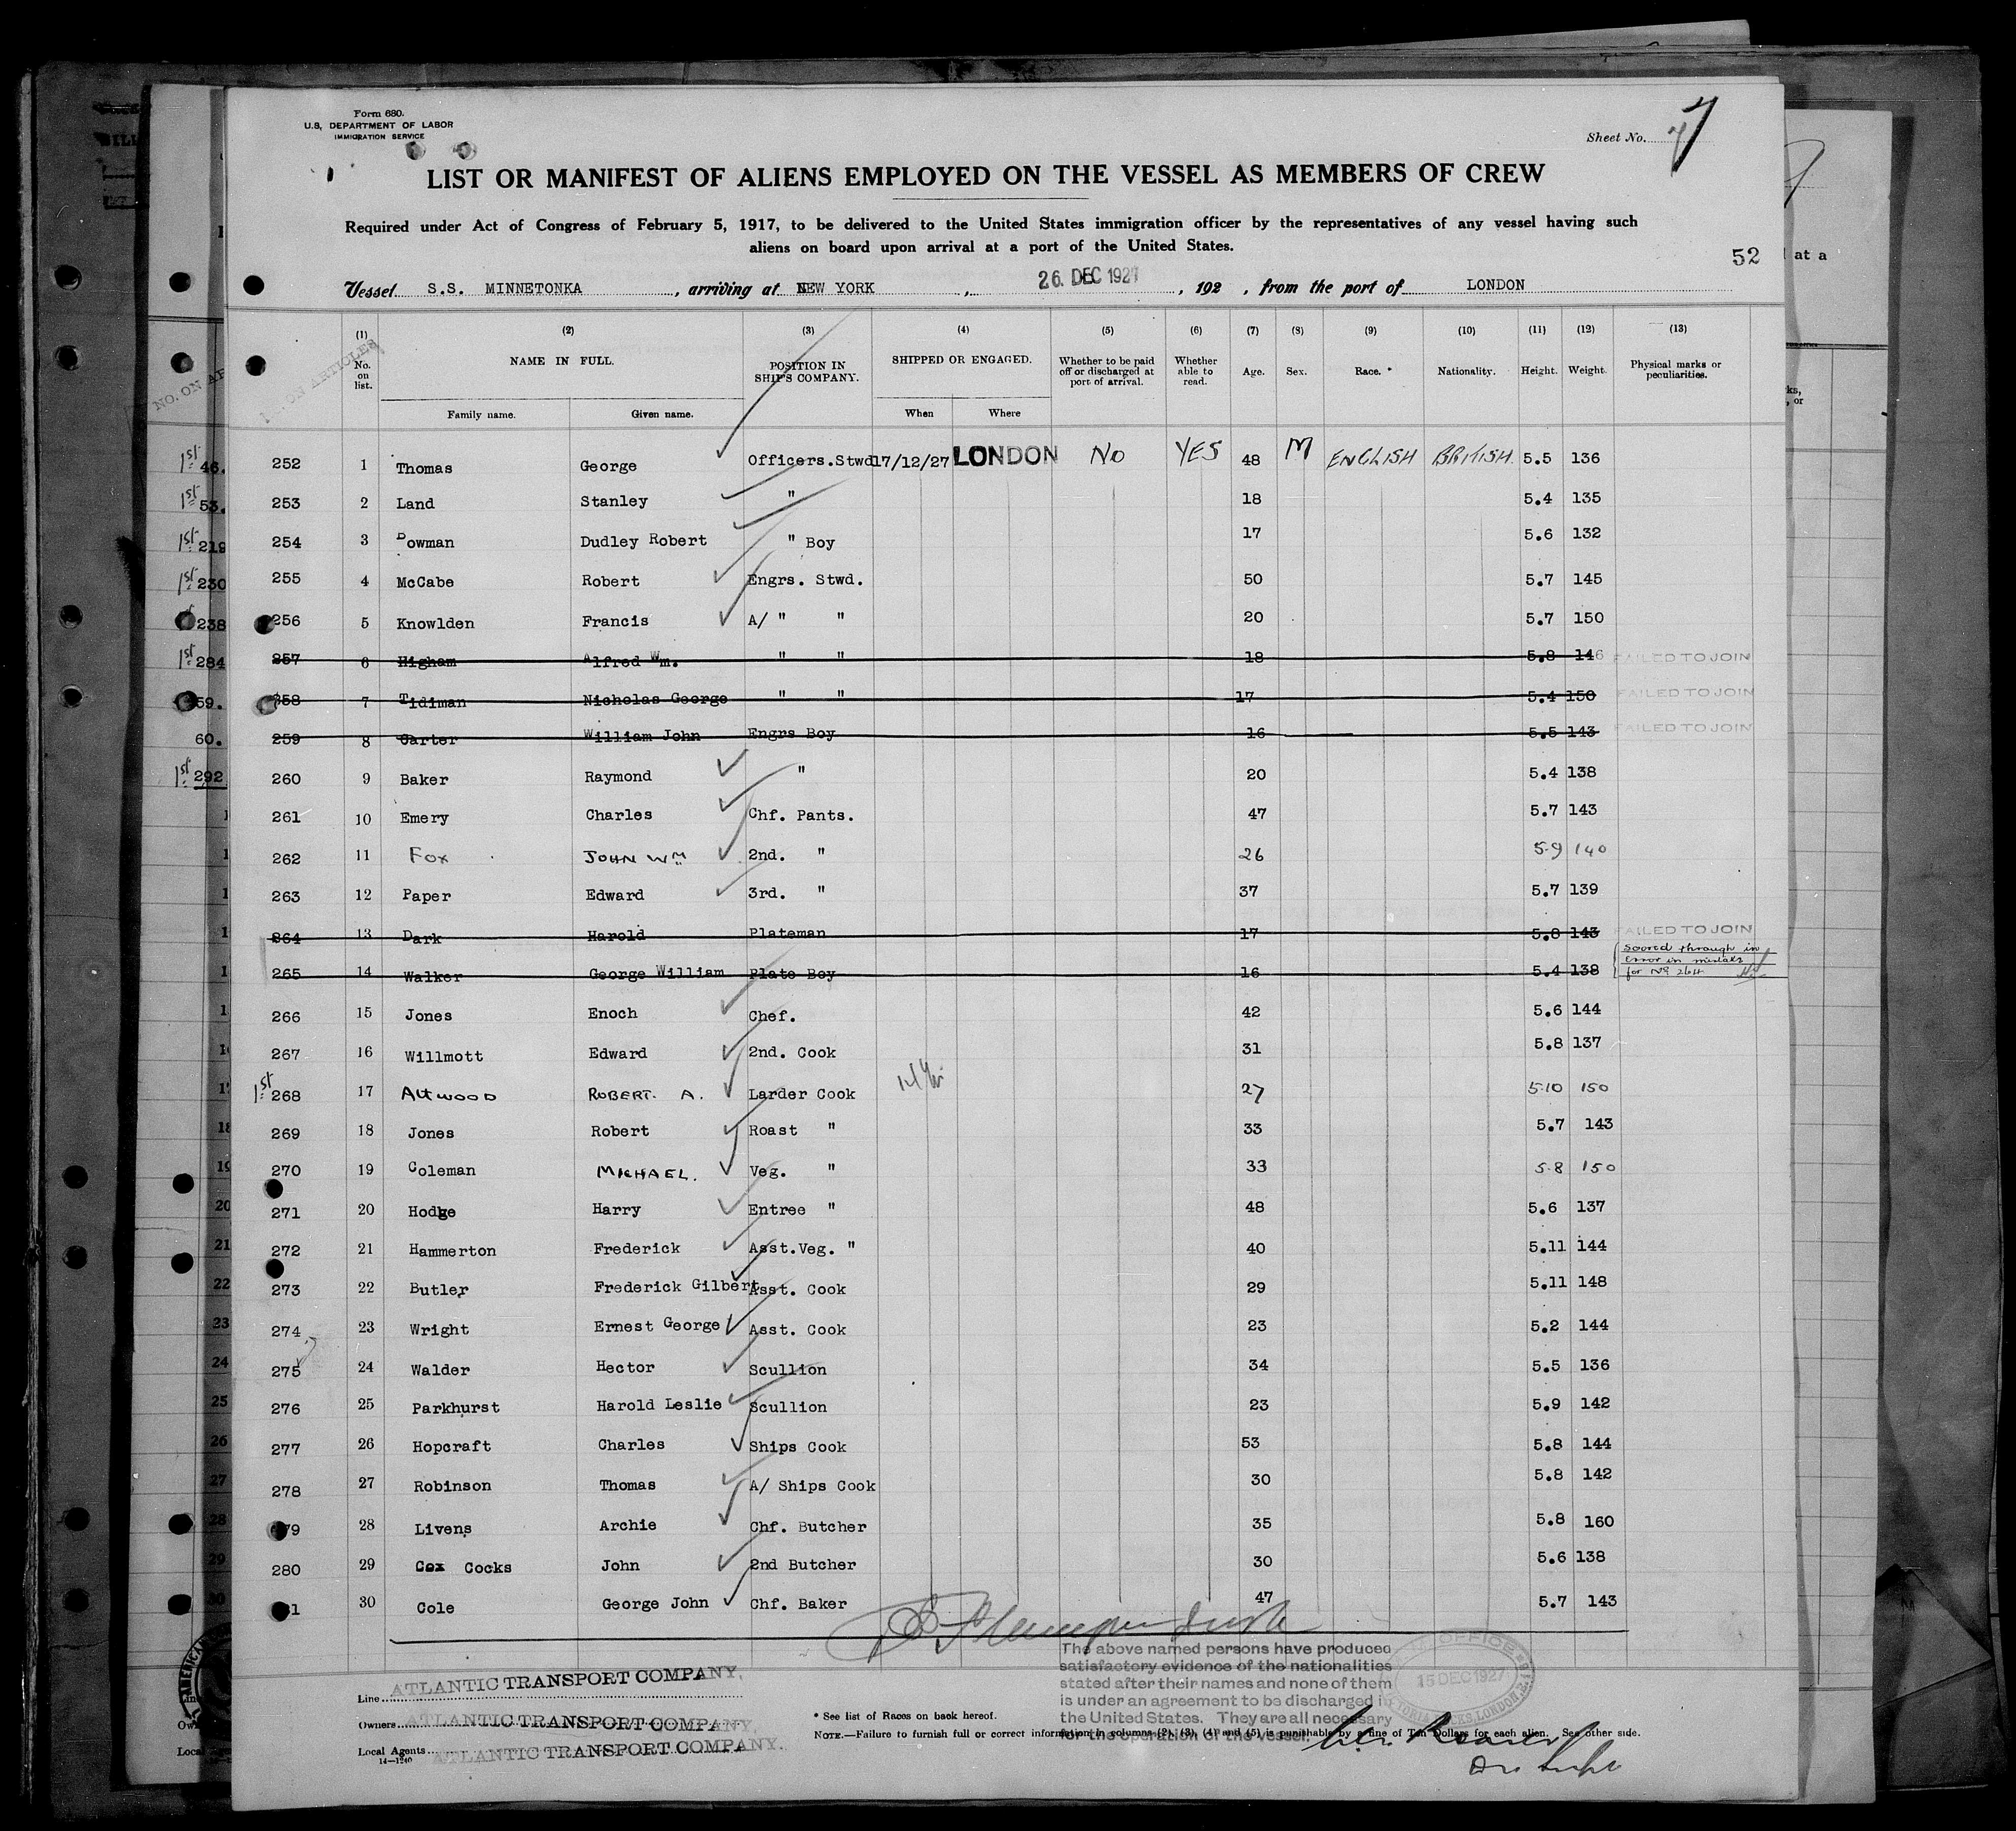 Form 680.
U.S. DEPARTMENT OF LABOR
IMMIGRATION SERVICE
Sheet No. 7
LIST OR MANIFEST OF ALIENS EMPLOYED ON THE VESSEL AS MEMBERS OF CREW
Required under Act of Congress of February 5, 1917, to be delivered to the United States immigration officer by the representatives of any vessel having such
aliens on board upon arrival at a port of the United States.
52
Vessel S.S. MINNETONKA, arriving at NEW YORK, 26. DEC 1927, 192 , from the port of LONDON
(1) (2) (3) (4) (5) (6) (7) (8) (9) (10) (11) (12) (13)
No. on list. NAME IN FULL. POSITION IN SHIP'S COMPANY. SHIPPED OR ENGAGED. Whether to be paid off or discharged at port of arrival. Whether able to read. Age. Sex. Race.* Nationality. Height. Weight. Physical marks or peculiarities.
Family name. Given name. When Where
NO. ON ARTICLES
252 1 Thomas George Officers.Stwd 17/12/27 LONDON NO YES 48 M ENGLISH BRITISH 5.5 136
253 2 Land Stanley " 18 5.4 135
254 3 Bowman Dudley Robert " Boy 17 5.6 132
255 4 McCabe Robert Engrs. Stwd. 50 5.7 145
256 5 Knowlden Francis A/ " " 20 5.7 150
257 6 Higham Alfred Wm. " " 18 5.8 146 FAILED TO JOIN
258 7 Tidiman Nicholas George " " 17 5.4 150 FAILED TO JOIN
259 8 Carter William John Engrs Boy 16 5.5 143 FAILED TO JOIN
260 9 Baker Raymond " 20 5.4 138
261 10 Emery Charles Chf. Pants. 47 5.7 143
262 11 Fox JOHN WM 2nd. " 26 5.9 140
263 12 Paper Edward 3rd. " 37 5.7 139
264 13 Dark Harold Plateman 17 5.8 143 FAILED TO JOIN
265 14 Walker George William Plate Boy 16 5.4 138 Scored through in Error in mistake for No 264
266 15 Jones Enoch Chef. 42 5.6 144
267 16 Willmott Edward 2nd. Cook 31 5.8 137
1st 268 17 Attwood ROBERT. A. Larder Cook 27 5.10 150
269 18 Jones Robert Roast " 33 5.7 143
270 19 Coleman MICHAEL. Veg. " 33 5.8 150
271 20 Hodge Harry Entree " 48 5.6 137
272 21 Hammerton Frederick Asst.Veg. " 40 5.11 144
273 22 Butler Frederick Gilbert Asst. Cook 29 5.11 148
274 23 Wright Ernest George Asst. Cook 23 5.2 144
275 24 Walder Hector Scullion 34 5.5 136
276 25 Parkhurst Harold Leslie Scullion 23 5.9 142
277 26 Hopcraft Charles Ships Cook 53 5.8 144
278 27 Robinson Thomas A/ Ships Cook 30 5.8 142
79 28 Livens Archie Chf. Butcher 35 5.8 160
280 29 Cox Cocks John 2nd Butcher 30 5.6 138
1 30 Cole George John Chf. Baker 47 5.7 143
The above named persons have produced
satisfactory evidence of the nationalities
stated after their names and none of them
is under an agreement to be discharged in
the United States. They are all necessary
for the operation of the vessel.
15 DEC 1927
Line ATLANTIC TRANSPORT COMPANY,
Owners ATLANTIC TRANSPORT COMPANY,
Local Agents ATLANTIC TRANSPORT COMPANY.
14—1240
* See list of Races on back hereof.
NOTE.—Failure to furnish full or correct information in columns (2), (3), (4) and (5) is punishable by a fine of Ten Dollars for each alien. See other side.